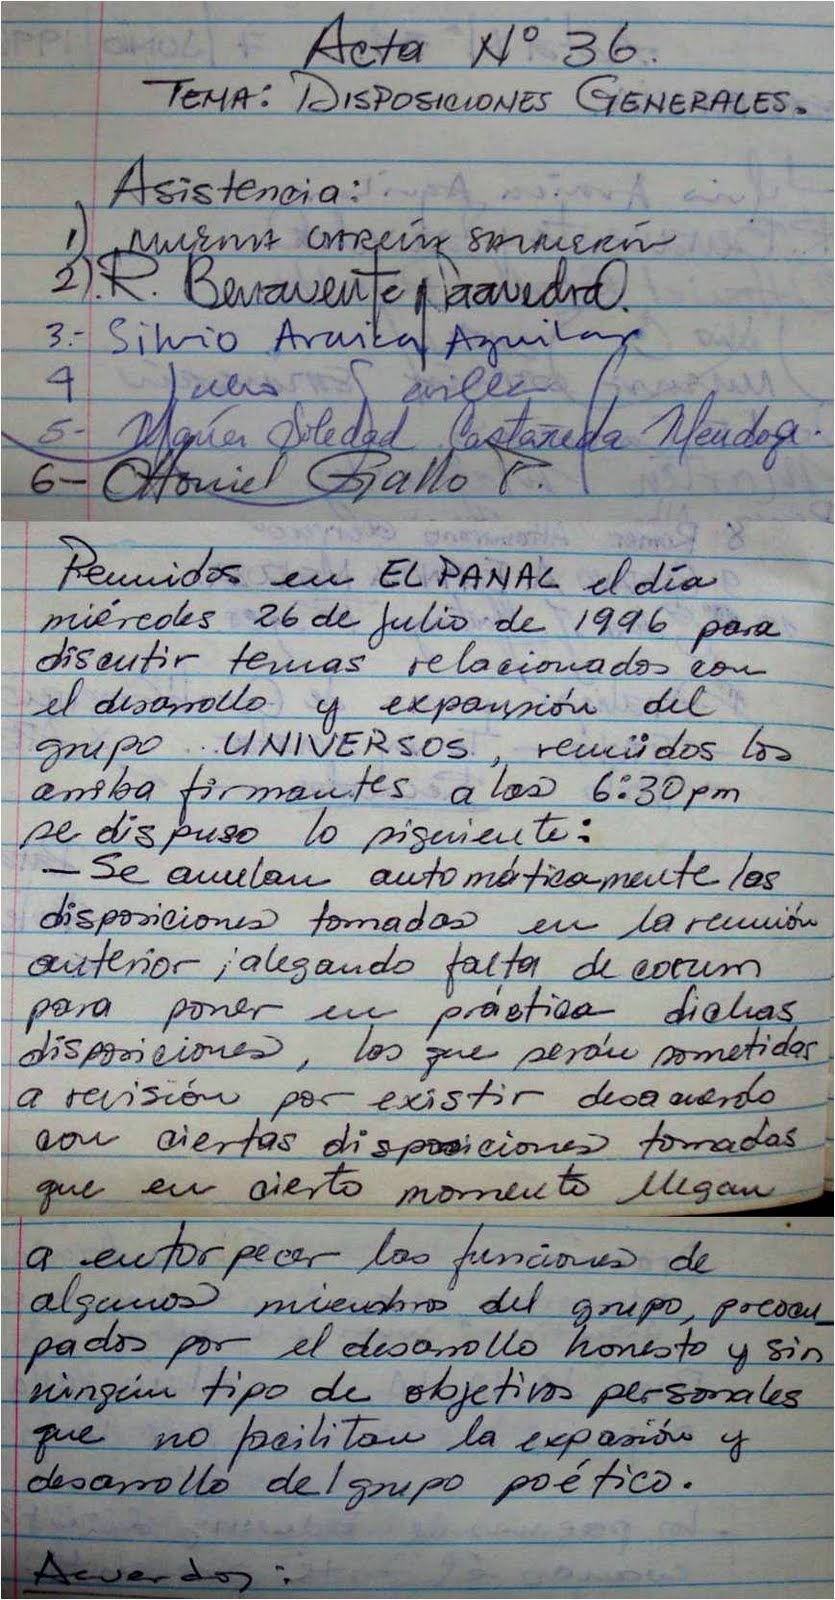 Acta Nº 36.
TEMA: DISPOSICIONES GENERALES.
Asistencia:
1) GARCÍA
2). R. Benavente Saavedra.
3.- Silvio Aguilar
4
5- María Soledad Castañeda Mendoza.
6- Othoniel Gallo
Reunidos en EL PANAL el día
miércoles 26 de Julio de 1996 para
discutir temas relacionados con
el desarrollo y expansión del
grupo UNIVERSOS, reunidos los
arriba firmantes a las 6:30 pm
se dispuso lo siguiente:
- Se anulan automáticamente las
disposiciones tomadas en la reunión
anterior; alegando falta de corum
para poner en práctica dichas
disposiciones, las que serán sometidas
a revisión por existir desacuerdo
con ciertas disposiciones tomadas
que en cierto momento llegan
a entorpecer las funciones de
algunos miembros del grupo, preocu_
pados por el desarrollo honesto y sin
ningún tipo de objetivos personales
que no facilitan la expasión y
desarrollo del grupo poético.
Acuerdos: